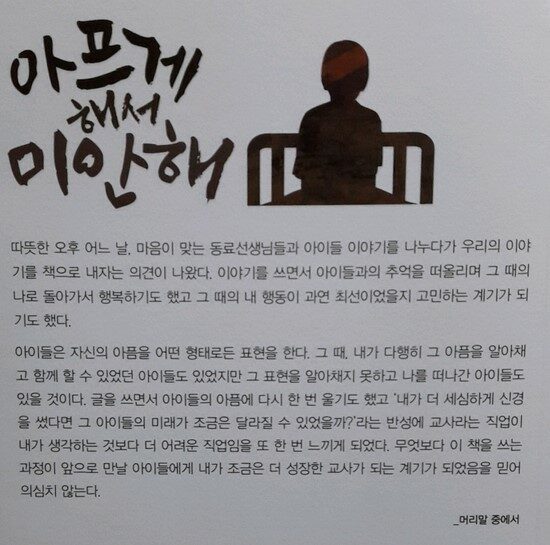 아프게
해서
미안해
따뜻한 오후 어느 날, 마음이 맞는 동료선생님들과 아이들 이야기를 나누다가 우리의 이야
기를 책으로 내자는 의견이 나왔다. 이야기를 쓰면서 아이들과의 추억을 떠올리며 그 때의
나로 돌아가서 행복하기도 했고 그 때의 내 행동이 과연 최선이었을지 고민하는 계기가 되
기도 했다.
아이들은 자신의 아픔을 어떤 형태로든 표현을 한다. 그 때, 내가 다행히 그 아픔을 알아채
고 함께 할 수 있었던 아이들도 있었지만 그 표현을 알아채지 못하고 나를 떠나간 아이들도
있을 것이다. 글을 쓰면서 아이들의 아픔에 다시 한 번 울기도 했고 ‘내가 더 세심하게 신경
을 썼다면 그 아이들의 미래가 조금은 달라질 수 있었을까?’라는 반성에 교사라는 직업이
내가 생각하는 것보다 더 어려운 직업임을 또 한 번 느끼게 되었다. 무엇보다 이 책을 쓰는
과정이 앞으로 만날 아이들에게 내가 조금은 더 성장한 교사가 되는 계기가 되었음을 믿어
의심치 않는다.
_머리말 중에서